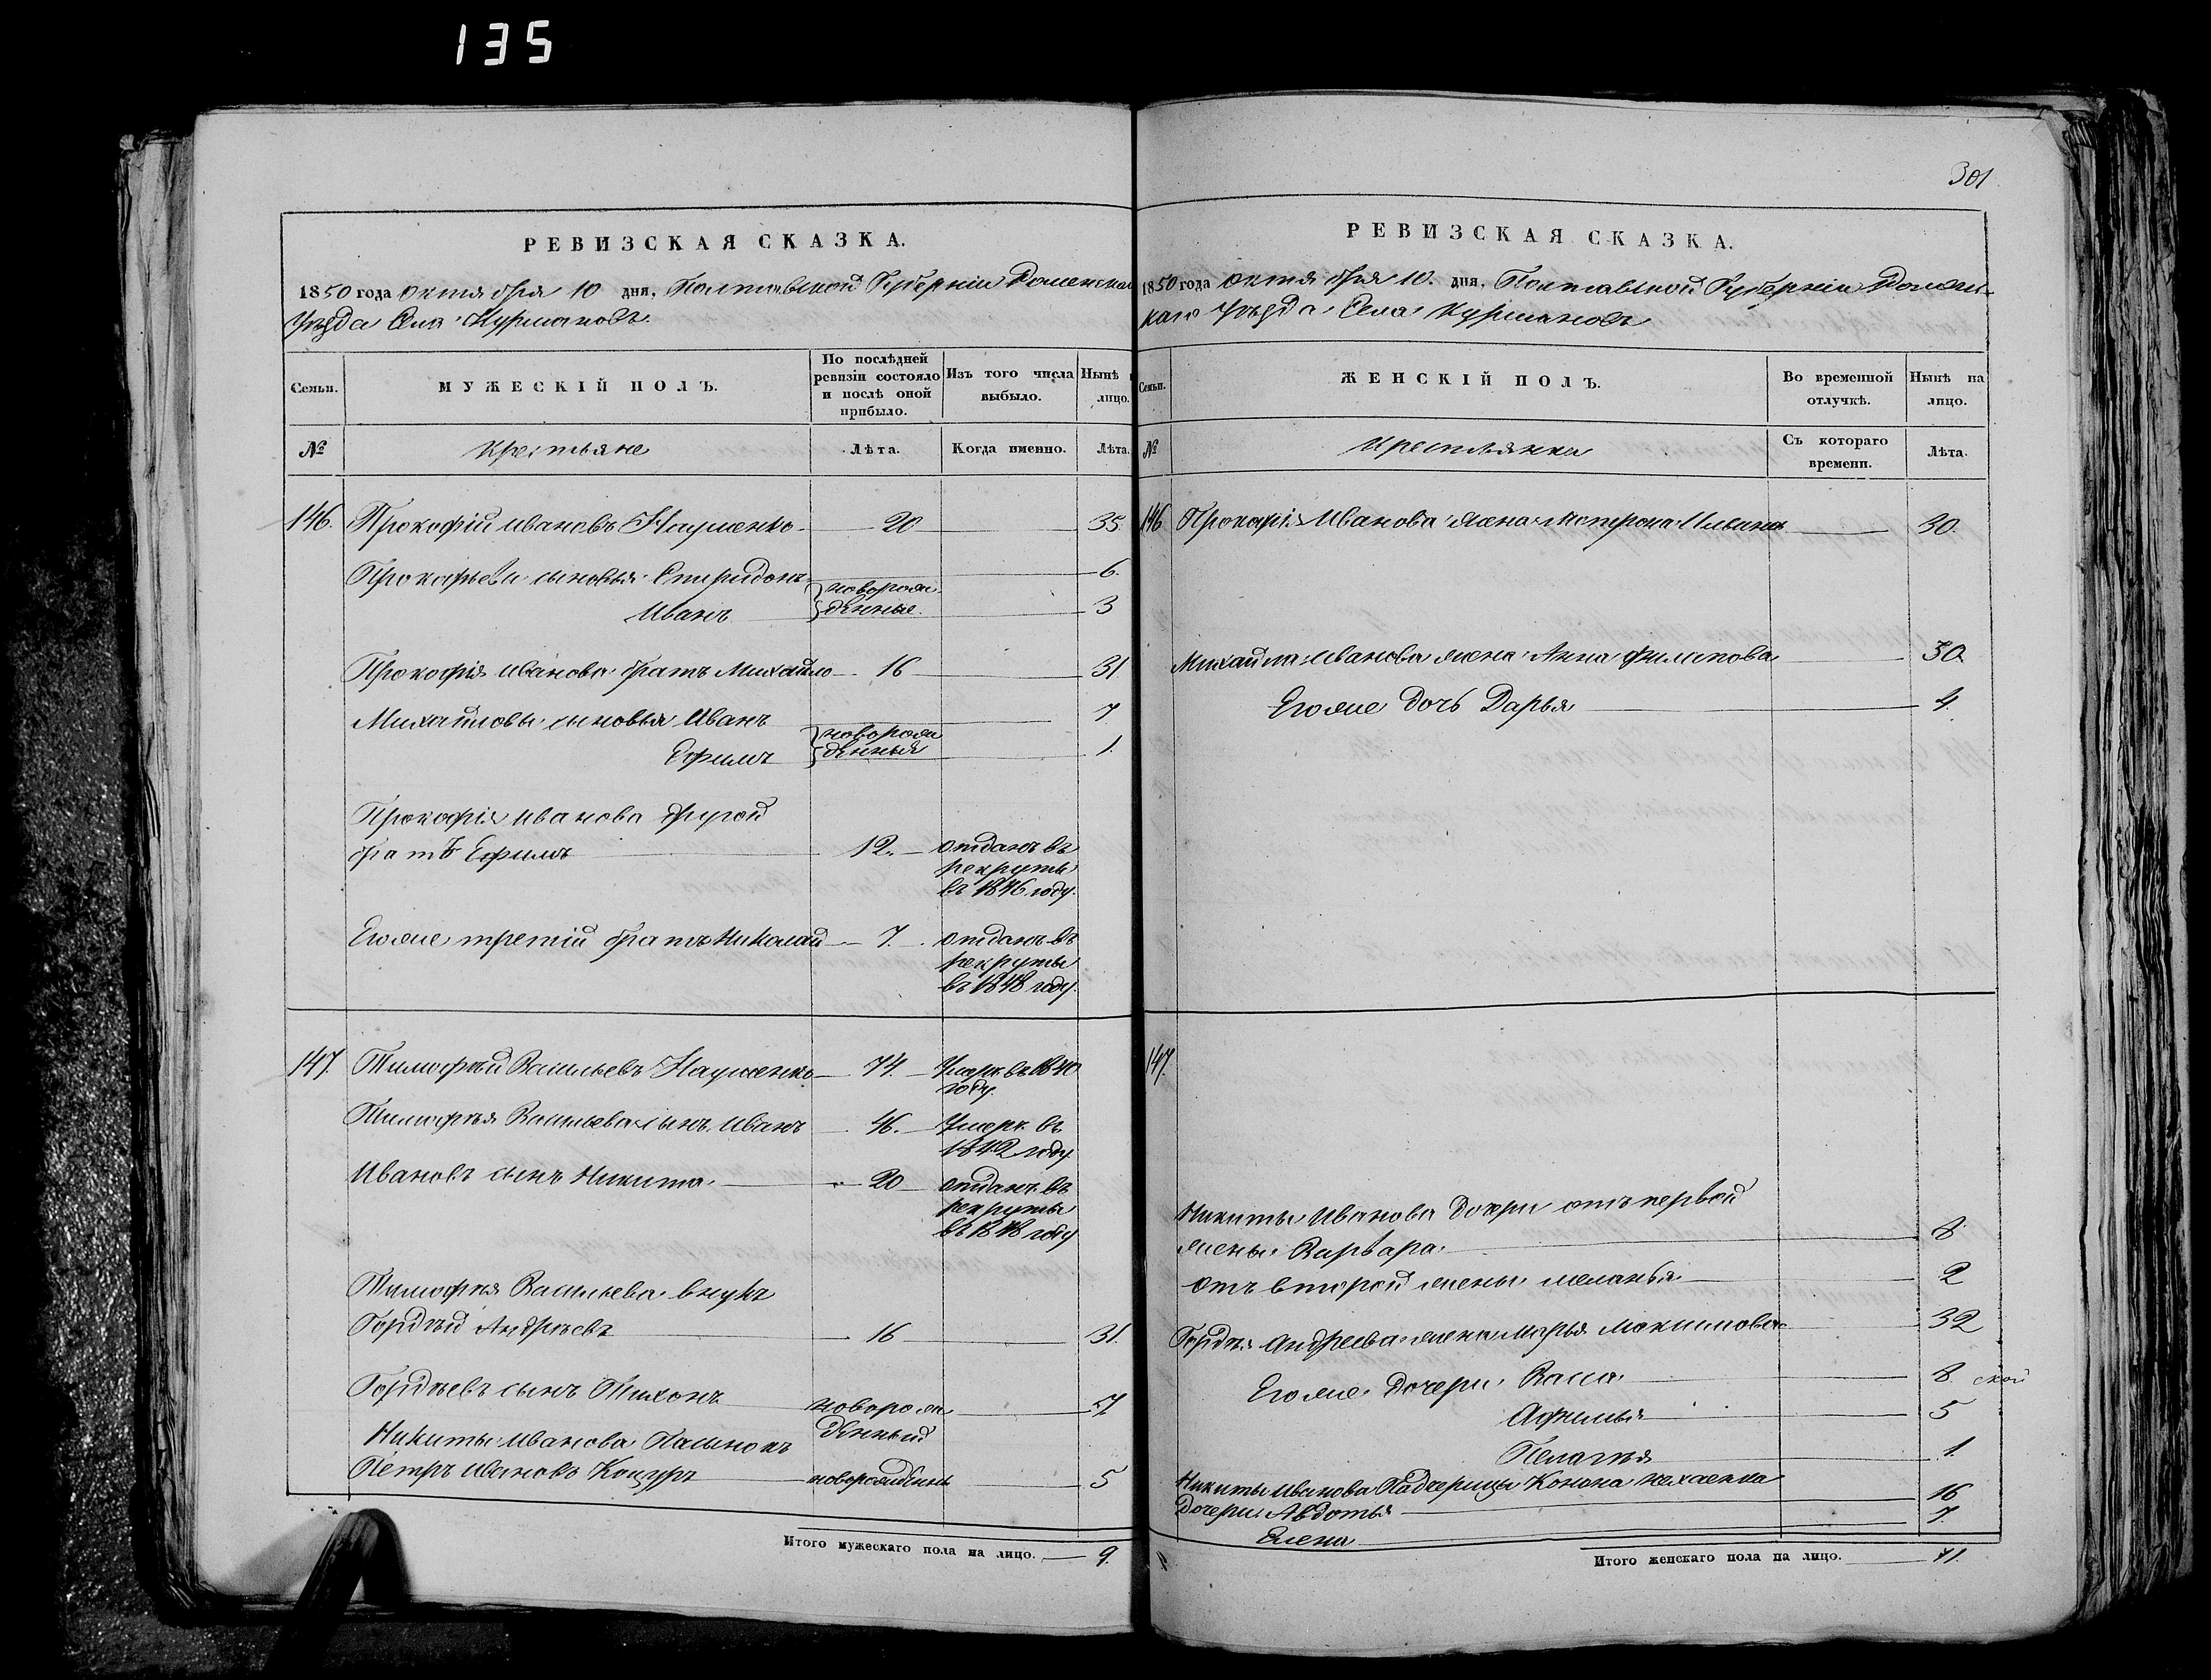 135
РЕВИЗСКАЯ СКАЗКА.
1850 года октября 10 дня, Полтавской Губерніи Роменскаго
Уѣзда Села Курмановъ
Семьи.
МУЖЕСКІЙ ПОЛЪ.
По послѣдней ревизіи состояло и послѣ оной прибыло.
Изъ того числа выбыло.
Нынѣ
лицо.
№
Крестьяне
Лѣта.
Когда именно.
Лѣта.
146. Прокофій Ивановъ Науменко 20 35
Прокофьевы сыновья Спиридонъ 6.
новорож
Иванъ денные 3
Прокофія Иванова братъ Михайло 16 31
Михайловы сыновья Иванъ 7
новорож
Ефимъ денныя 1.
Прокофія Иванова другой
братъ Ефимъ 12. отданъ въ
рекруты
въ 1846 году.
Егоже третій братъ Николай 7. отданъ въ
рекруты
въ 1848 году.
147. Тимофѣй Васильевъ Науменко 74. Умеръ въ 1840
году.
Тимофѣя Васильева сынъ Иванъ 46. Умеръ въ
1842 году
Ивановъ сынъ Никита 20 отданъ въ
рекруты
въ 1848 году
Тимофѣя Васильева внукъ
Гордѣй Андрѣевъ 16 31.
Гордѣевъ сынъ Тихонъ новорож 7
денный
Никиты Иванова Пасынокъ
Петръ Ивановъ новорожденъ 5
Итого мужескаго пола на лицо. 9.
301
РЕВИЗСКАЯ СКАЗКА.
1850 года октября 10. дня, Полтавской Губерніи Ромен-
скаго Уѣзда Села Курмановъ
Семьи.
ЖЕНСКІЙ ПОЛЪ.
Во временной отлучкѣ.
Нынѣ на лицо.
№
Крестьянки
Съ котораго времени.
Лѣта.
146 Прокофія Иванова жена Мотрона Ильина 30.
Михайла Иванова жена Анна Филипова 30.
Егоже дочь Дарья 4.
147.
Никиты Иванова дочери отъ первой
жены Варвара 8.
отъ второй жены Меланья 2
Гордѣя Андреева жена Марья Максимова 32
Егоже дочери Васса 8
ской
Афимья 5
Пелагея 1.
Никиты Иванова Падчерицы Конона
Дочери Авдотья 16
Елена 7.
Итого женскаго пола на лицо. 11.